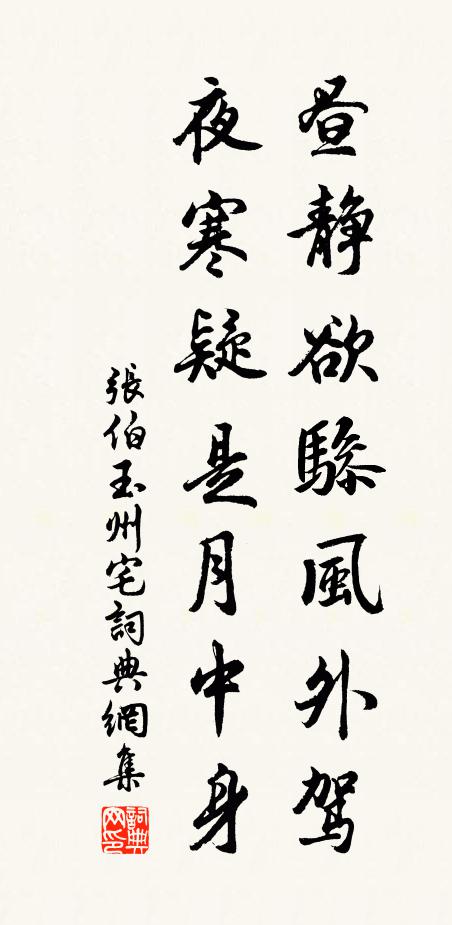 昼静欲骖風外駕
夜寒疑是月中身
張伯玉州宅詞典網集
詞典網印